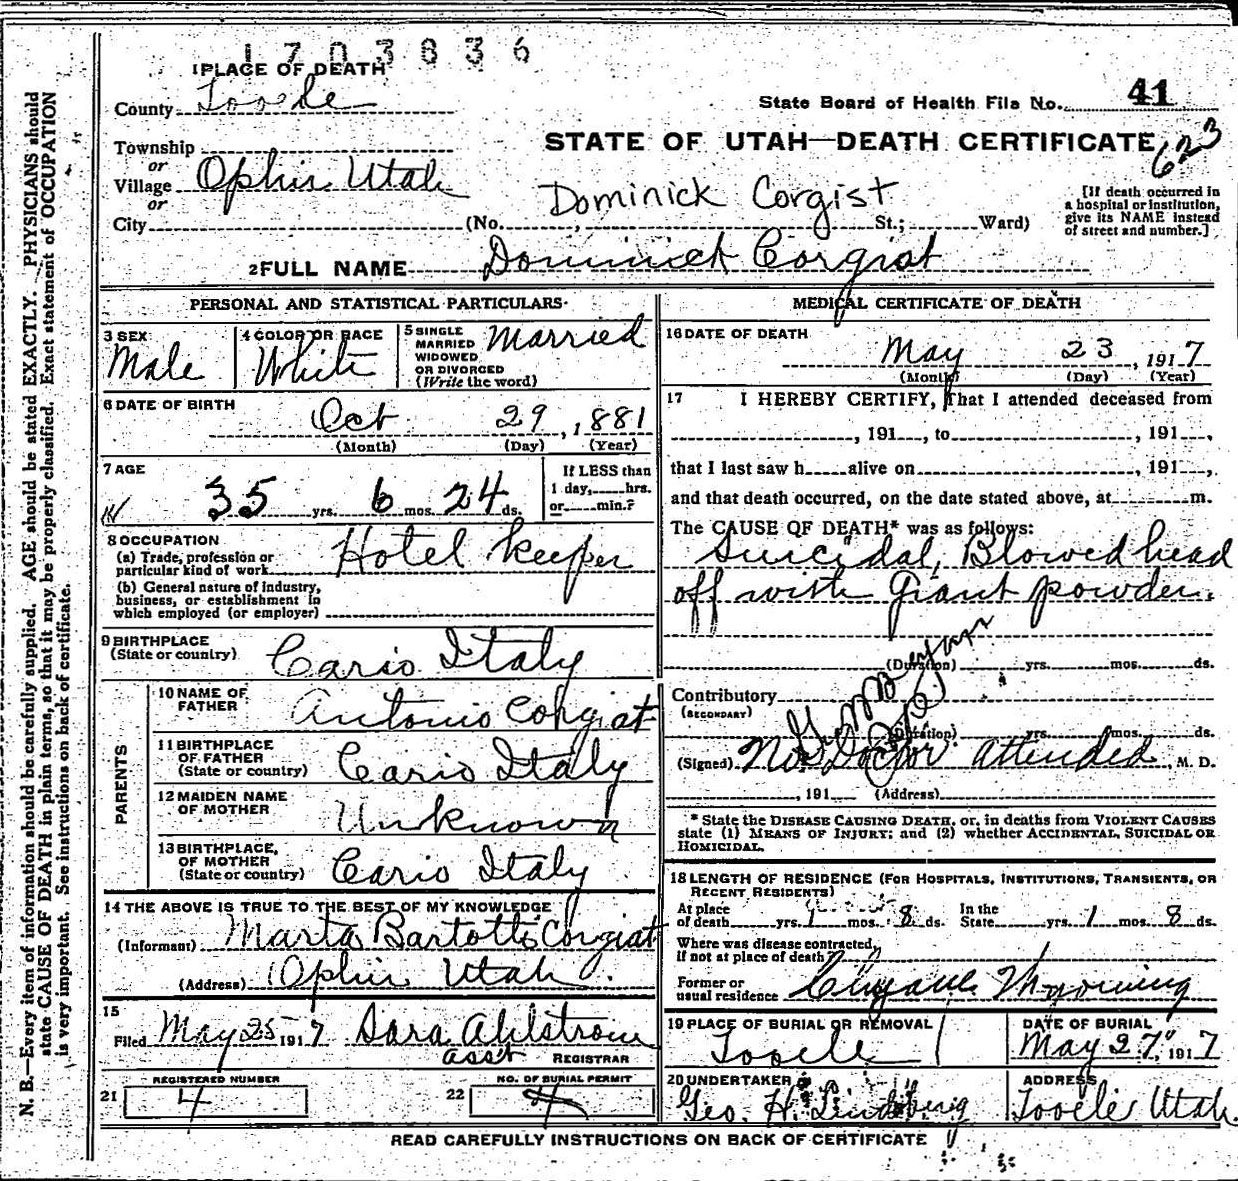 1703836
1 PLACE OF DEATH
County Tooele
State Board of Health File No. 41
STATE OF UTAH—DEATH CERTIFICATE
623
Township
or
Village Ophir Utah
or
City (No. , St.; Ward)
Dominick Corgist
[If death occurred in
a hospital or institution,
give its NAME instead
of street and number.]
2 FULL NAME Dominick Corgiat
PERSONAL AND STATISTICAL PARTICULARS
3 SEX
Male
4 COLOR OR RACE
White
5 SINGLE
MARRIED
WIDOWED
OR DIVORCED
(Write the word)
Married
6 DATE OF BIRTH
Oct 29, 1881
(Month) (Day) (Year)
7 AGE
35 yrs. 6 mos. 24 ds.
If LESS than
1 day, hrs.
or min.?
8 OCCUPATION
(a) Trade, profession or
particular kind of work Hotel keeper
(b) General nature of industry,
business, or establishment in
which employed (or employer)
9 BIRTHPLACE
(State or country) Cario Italy
PARENTS
10 NAME OF
FATHER Antonio Corgiat
11 BIRTHPLACE
OF FATHER
(State or country) Cario Italy
12 MAIDEN NAME
OF MOTHER Unknown
13 BIRTHPLACE,
OF MOTHER
(State or country) Cario Italy
14 THE ABOVE IS TRUE TO THE BEST OF MY KNOWLEDGE
(Informant) Marta Bartotti Corgiat
(Address) Ophir Utah.
15
Filed May 25 1917 Sara Ahlstrom
asst REGISTRAR
REGISTERED NUMBER
21 4
NO. OF BURIAL PERMIT
22 4
MEDICAL CERTIFICATE OF DEATH
16 DATE OF DEATH
May 23, 1917
(Month) (Day) (Year)
17 I HEREBY CERTIFY, That I attended deceased from
, 191 , to , 191 ,
that I last saw h alive on , 191 ,
and that death occurred, on the date stated above, at m.
The CAUSE OF DEATH* was as follows:
Suicidal, Blowed head
off with Giant powder.
(Duration) yrs. mos. ds.
Contributory
(SECONDARY)
(Duration) yrs. mos. ds.
(Signed) No Doctor attended, M. D.
, 191 (Address)
* State the DISEASE CAUSING DEATH, or, in deaths from VIOLENT CAUSES
state (1) MEANS OF INJURY; and (2) whether ACCIDENTAL, SUICIDAL OR
HOMICIDAL.
18 LENGTH OF RESIDENCE (FOR HOSPITALS, INSTITUTIONS, TRANSIENTS, OR
RECENT RESIDENTS)
At place
of death yrs. 1 mos. 8 ds.
In the
State yrs. 1 mos. 8 ds.
Where was disease contracted,
if not at place of death?
Former or
usual residence
19 PLACE OF BURIAL OR REMOVAL
Tooele
DATE OF BURIAL
May 27, 1917
20 UNDERTAKER
Geo. H. Lindberg
ADDRESS
Tooele Utah.
READ CAREFULLY INSTRUCTIONS ON BACK OF CERTIFICATE
N. B.—Every item of information should be carefully supplied. AGE should be stated EXACTLY. PHYSICIANS should
state CAUSE OF DEATH in plain terms, so that it may be properly classified. Exact statement of OCCUPATION
is very important. See instructions on back of certificate.